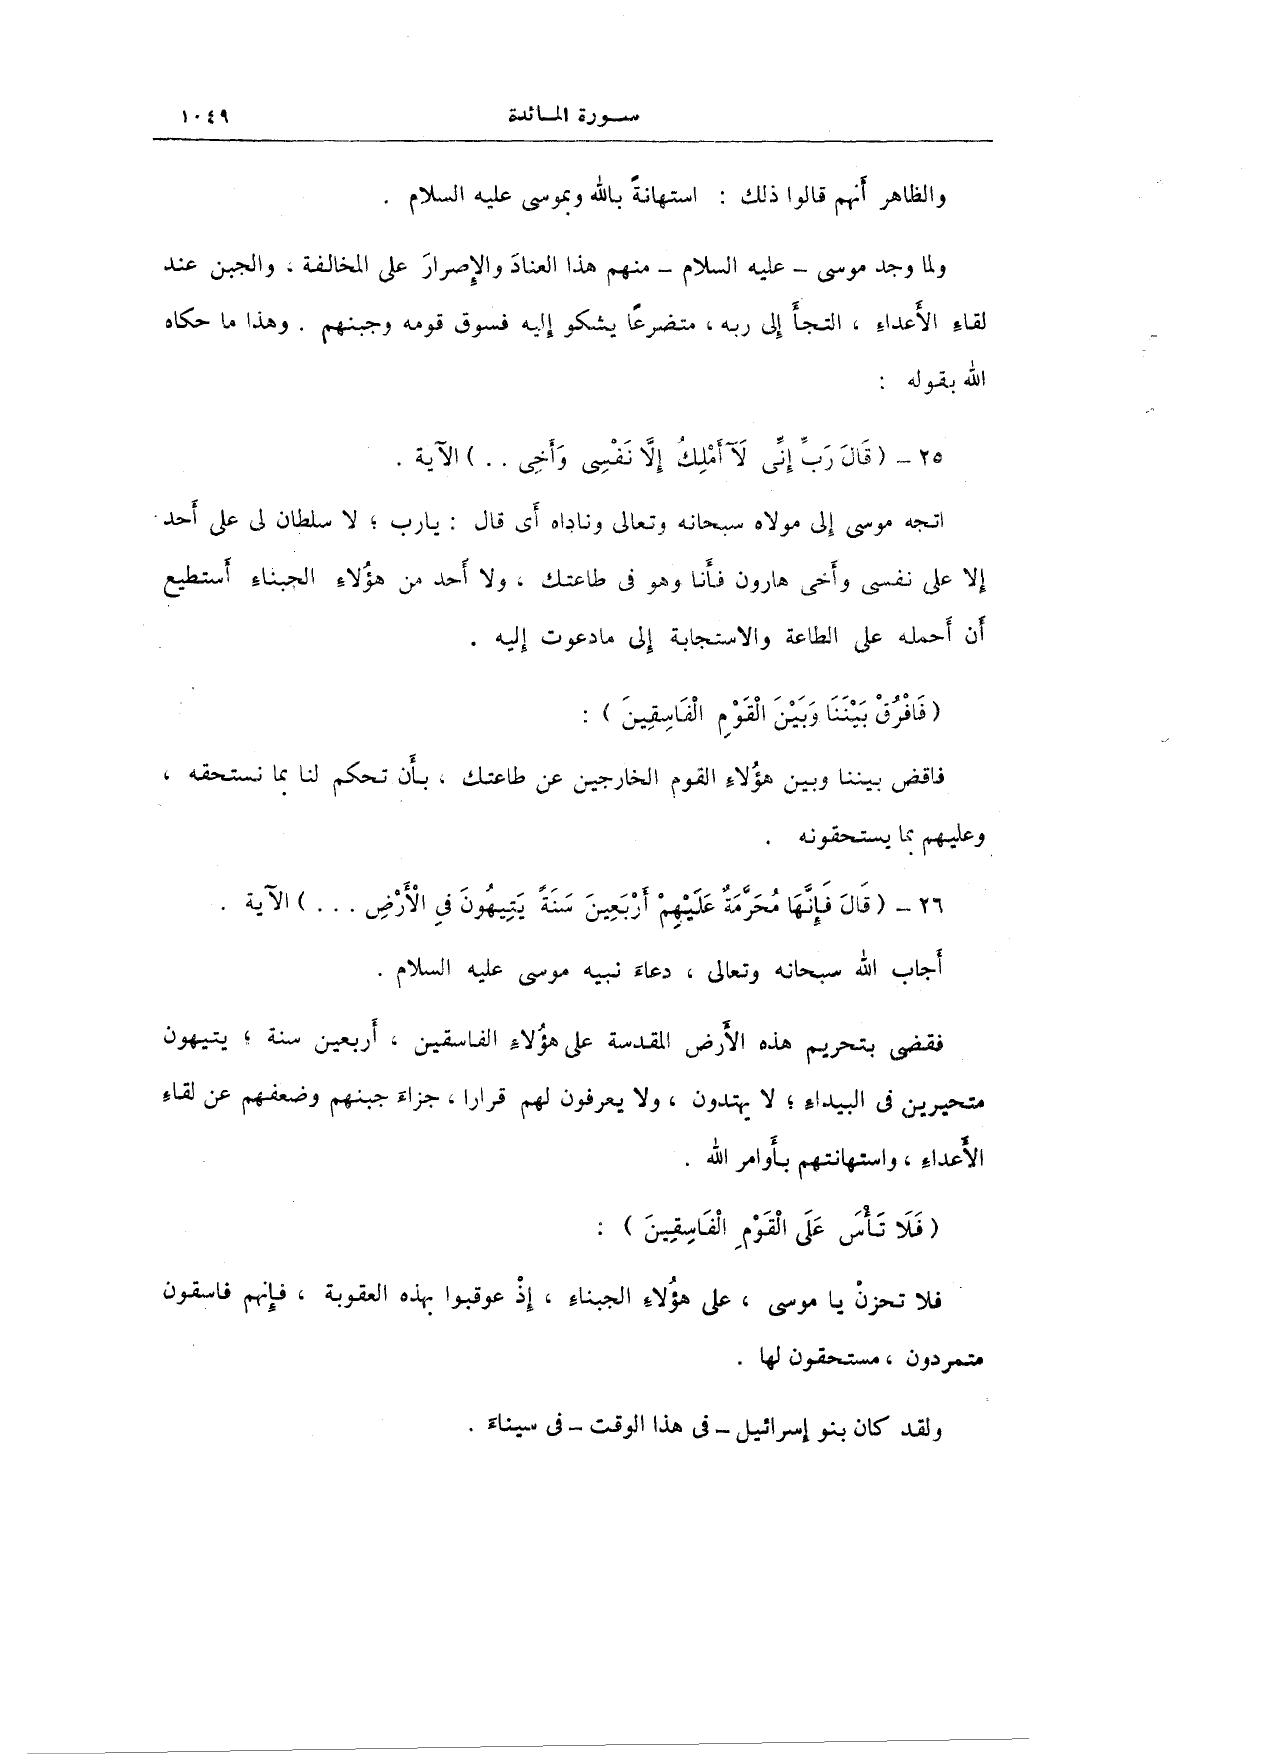 سورة المائدة ١٠٤٩
والظاهر أَنهم قالوا ذلك : استهانةً بالله وبموسى عليه السلام .
ولما وجد موسى – عليه السلام – منهم هذا العنادَ والإِصرارَ على المخالفة ، والجبن عند
لقاءِ الأَعداءِ ، التجأَ إِلى ربه ، متضرعًا يشكو إِليه فسوق قومه وجبنهم . وهذا ما حكاه
الله بقوله :
٢٥ – ( قَالَ رَبِّ إِنِّى لَآ أَمْلِكُ إِلَّا نَفْسِى وَأَخِى . . ) الآية .
اتجه موسى إِلى مولاه سبحانه وتعالى وناداه أَى قال : يارب ؛ لا سلطان لى على أَحد
إِلا على نفسى وأَخى هارون فأَنا وهو فى طاعتك ، ولا أَحد من هؤُلاءِ الجبناءِ أَستطيع
أَن أَحمله على الطاعة والاستجابة إِلى مادعوت إِليه .
( فَافْرُقْ بَيْنَنَا وَبَيْنَ الْقَوْمِ الْفَاسِقِينَ ) :
فاقض بيننا وبين هؤُلاءِ القوم الخارجين عن طاعتك ، بأَن تحكم لنا بما نستحقه ،
وعليهم بما يستحقونه .
٢٦ – ( قَالَ فَإِنَّهَا مُحَرَّمَةٌ عَلَيْهِمْ أَرْبَعِينَ سَنَةً يَتِيهُونَ فِى الْأَرْضِ . . . ) الآية .
أَجاب الله سبحانه وتعالى ، دعاءَ نبيه موسى عليه السلام .
فقضى بتحريم هذه الأَرض المقدسة على هؤُلاءِ الفاسقين ، أَربعين سنة ؛ يتيهون
متحيرين فى البيداءِ ؛ لا يهتدون ، ولا يعرفون لهم قرارا ، جزاءَ جبنهم وضعفهم عن لقاءِ
الأَعداءِ ، واستهانتهم بأَوامر الله .
( فَلَا تَأْسَ عَلَى الْقَوْمِ الْفَاسِقِينَ ) :
فلا تحزنْ يا موسى ، على هؤُلاءِ الجبناءِ ، إِذْ عوقبوا بهذه العقوبة ، فإِنهم فاسقون
متمردون ، مستحقون لها .
ولقد كان بنو إِسرائيل – فى هذا الوقت – فى سيناءَ .